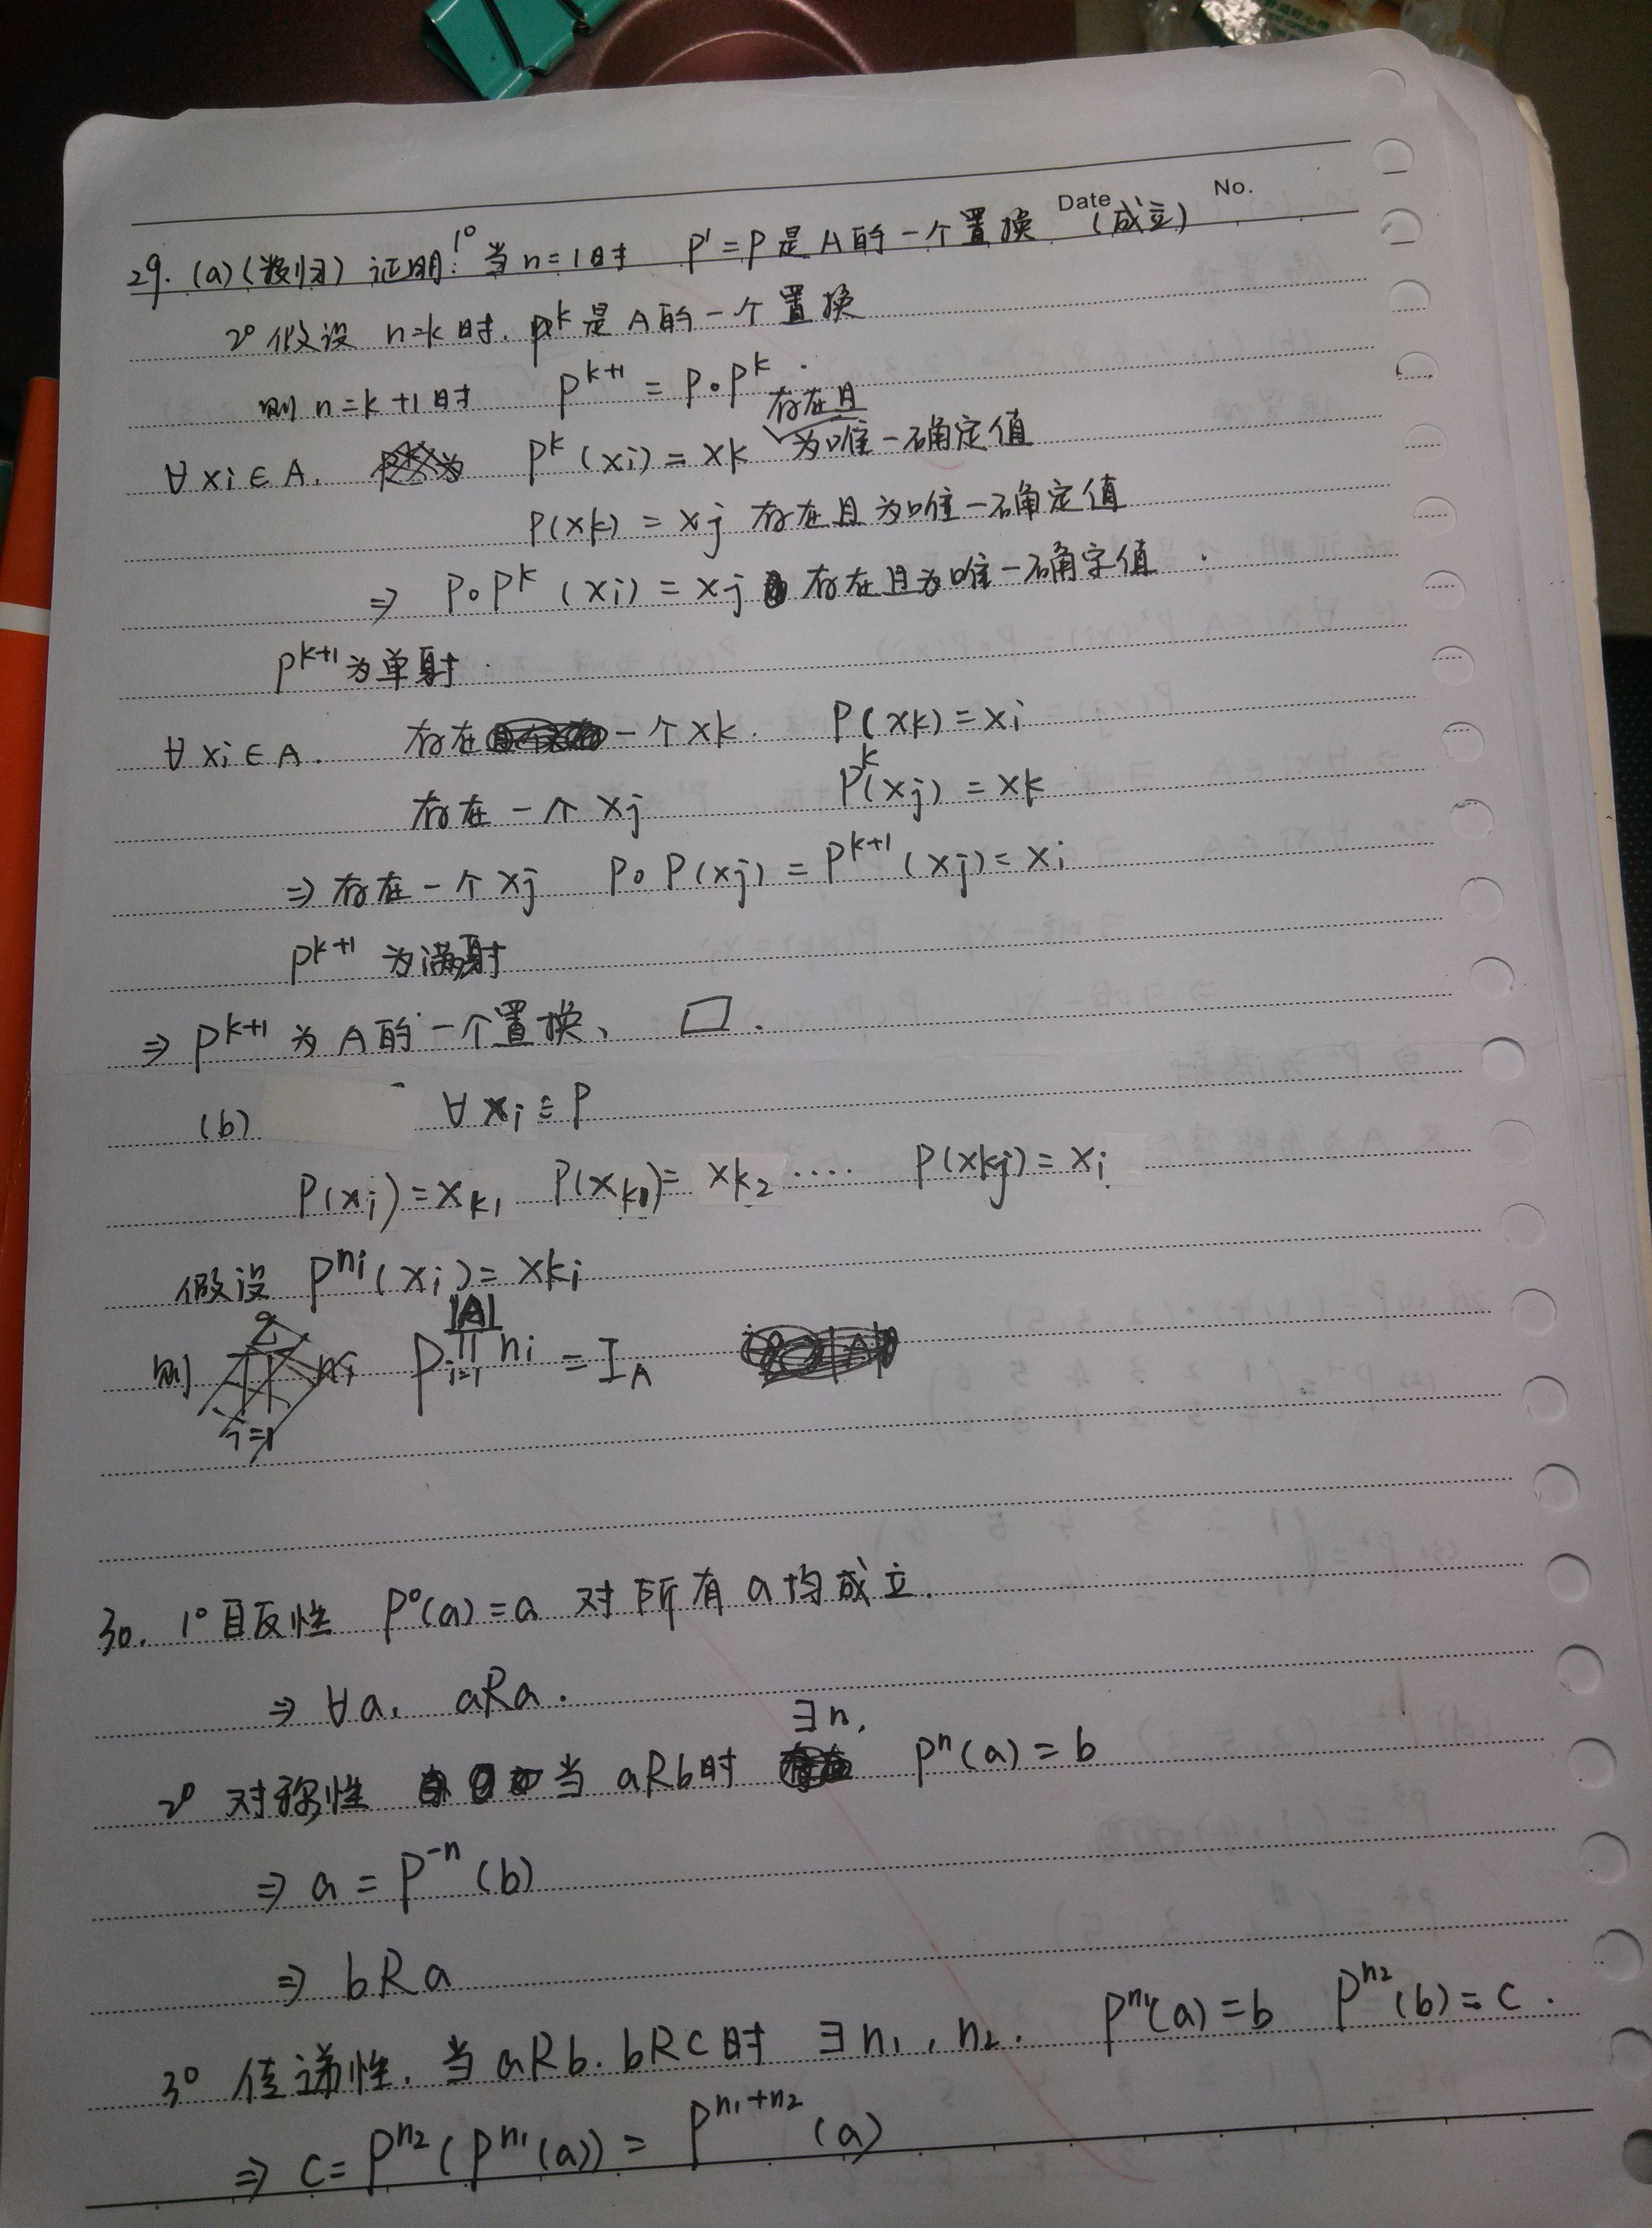 Date No.
29. (a)(数归) 证明: 1° 当n=1时 P¹=P是A的一个置换 (成立)
2° 假设 n=k时. P^k是A的一个置换
则n=k+1时 P^{k+1} = P∘P^k.
∀xi∈A. P^k(xi)=xk 存在且为唯一确定值
P(xk)=xj 存在且为唯一确定值
⇒ P∘P^k(xi)=xj 存在且为唯一确定值.
P^{k+1}为单射.
∀xi∈A. 存在一个xk. P(xk)=xi
存在一个xj P^k(xj)=xk
⇒存在一个xj P∘P(xj)=P^{k+1}(xj)=xi
P^{k+1}为满射
⇒P^{k+1}为A的一个置换、 □.
(b) ∀xi∈P
P(xi)=x_{k1} P(x_{k1})=x_{k2} ···· P(xkj)=xi
假设 P^{ni}(xi)=xki
则 P^{∏_{i=1}^{|A|} ni} = I_A
30. 1°自反性 P⁰(a)=a 对所有a均成立.
⇒∀a. aRa.
2° 对称性 当aRb时 ∃n, Pⁿ(a)=b
⇒a=P^{-n}(b)
⇒bRa
3° 传递性. 当aRb. bRc时 ∃n₁,n₂. P^{n₁}(a)=b P^{n₂}(b)=c.
⇒c=P^{n₂}(P^{n₁}(a))=P^{n₁+n₂}(a)